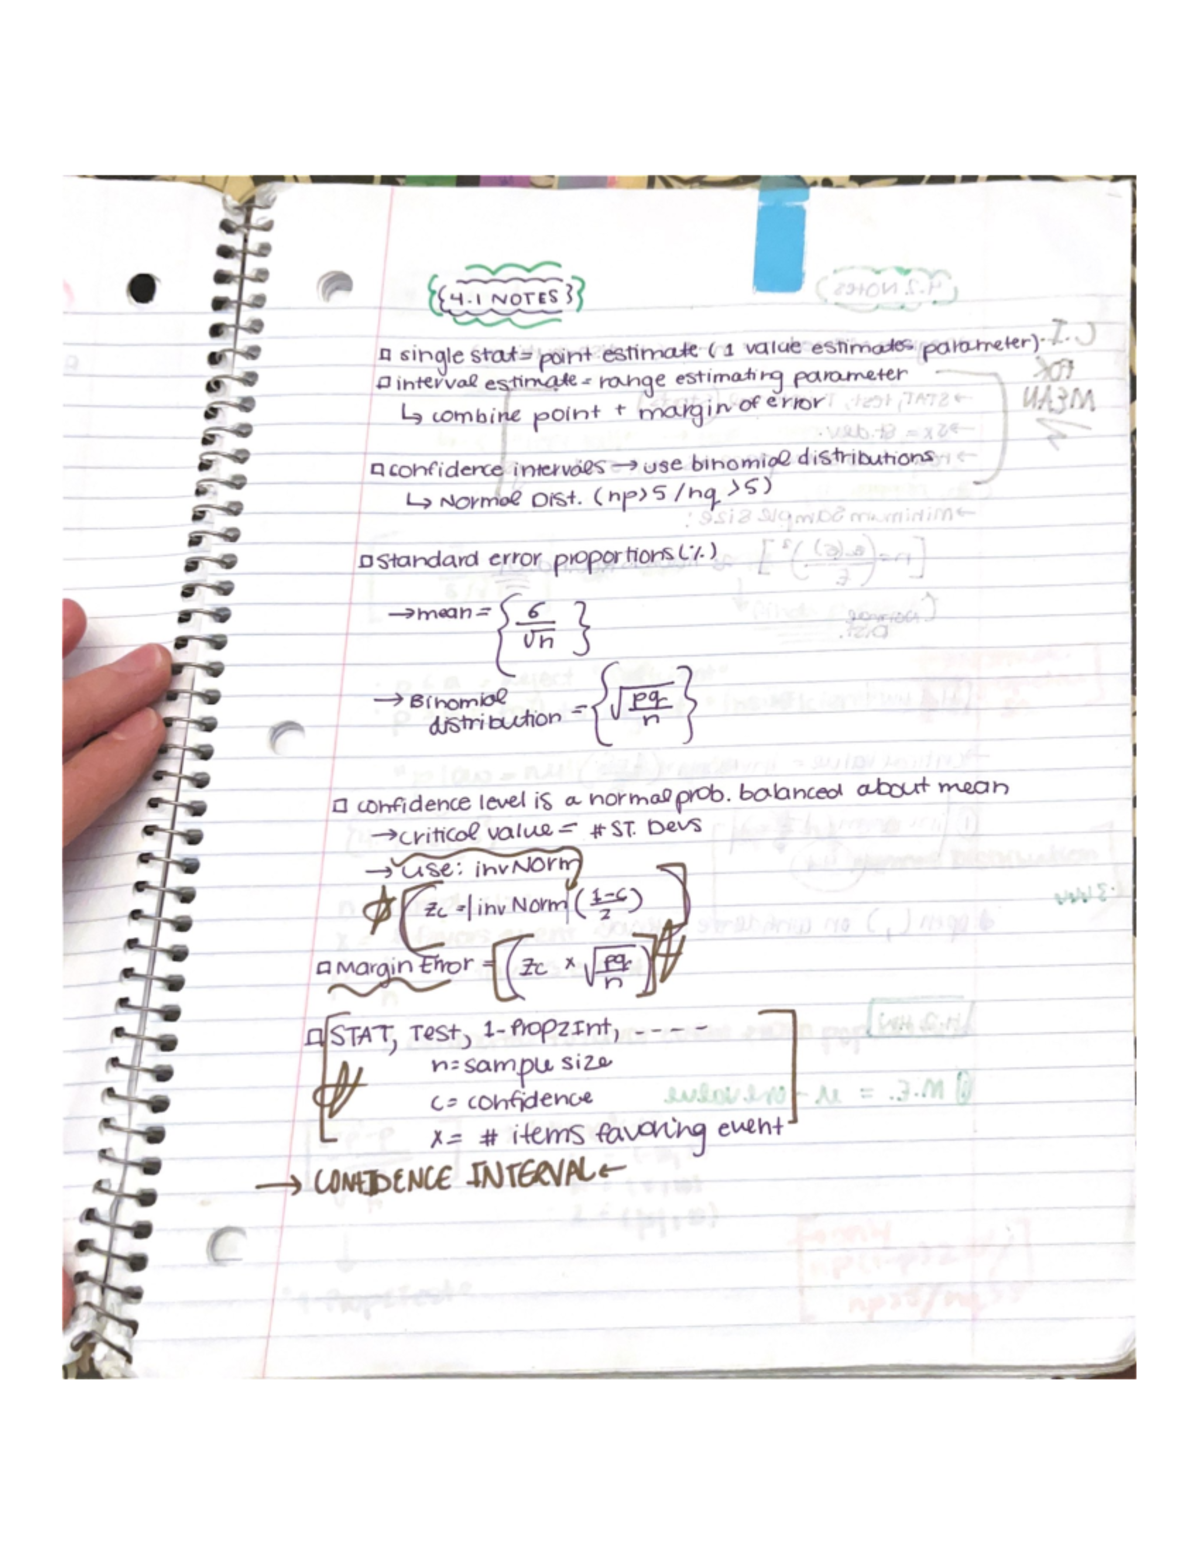 {{4.1 NOTES}}
□ single stat = point estimate (1 value estimates parameter).
□ interval estimate = range estimating parameter
↳ combine point + margin of error
□ confidence intervals → use binomial distributions
↳ Normal Dist. (np>5/nq>5)
□ Standard error proportions (%)
→ mean = {σ/√n}
→ Binomial
distribution = {√(pq/n)}
□ confidence level is a normal prob. balanced about mean
→ critical value = # ST. Devs
→ use: invNorm
[zc = |invNorm|(1-c/2)]
□ Margin Error = [(zc × √(pq/n))]
□ STAT, Test, 1-PropZInt, - - - -
n= sample size
c= confidence
x= # items favoring event
→ CONFIDENCE INTERVAL ←